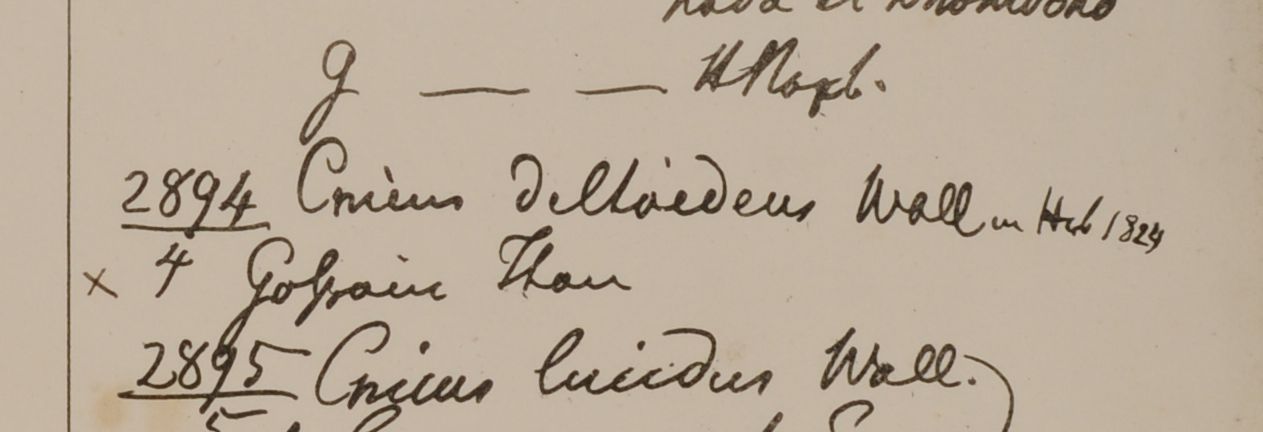 et
g — — HRoxb.
2894 Cnicus deltoideus Wall in Herb 1824
x 4 Gossain Than
2895 Cnicus lucidus Wall.
5